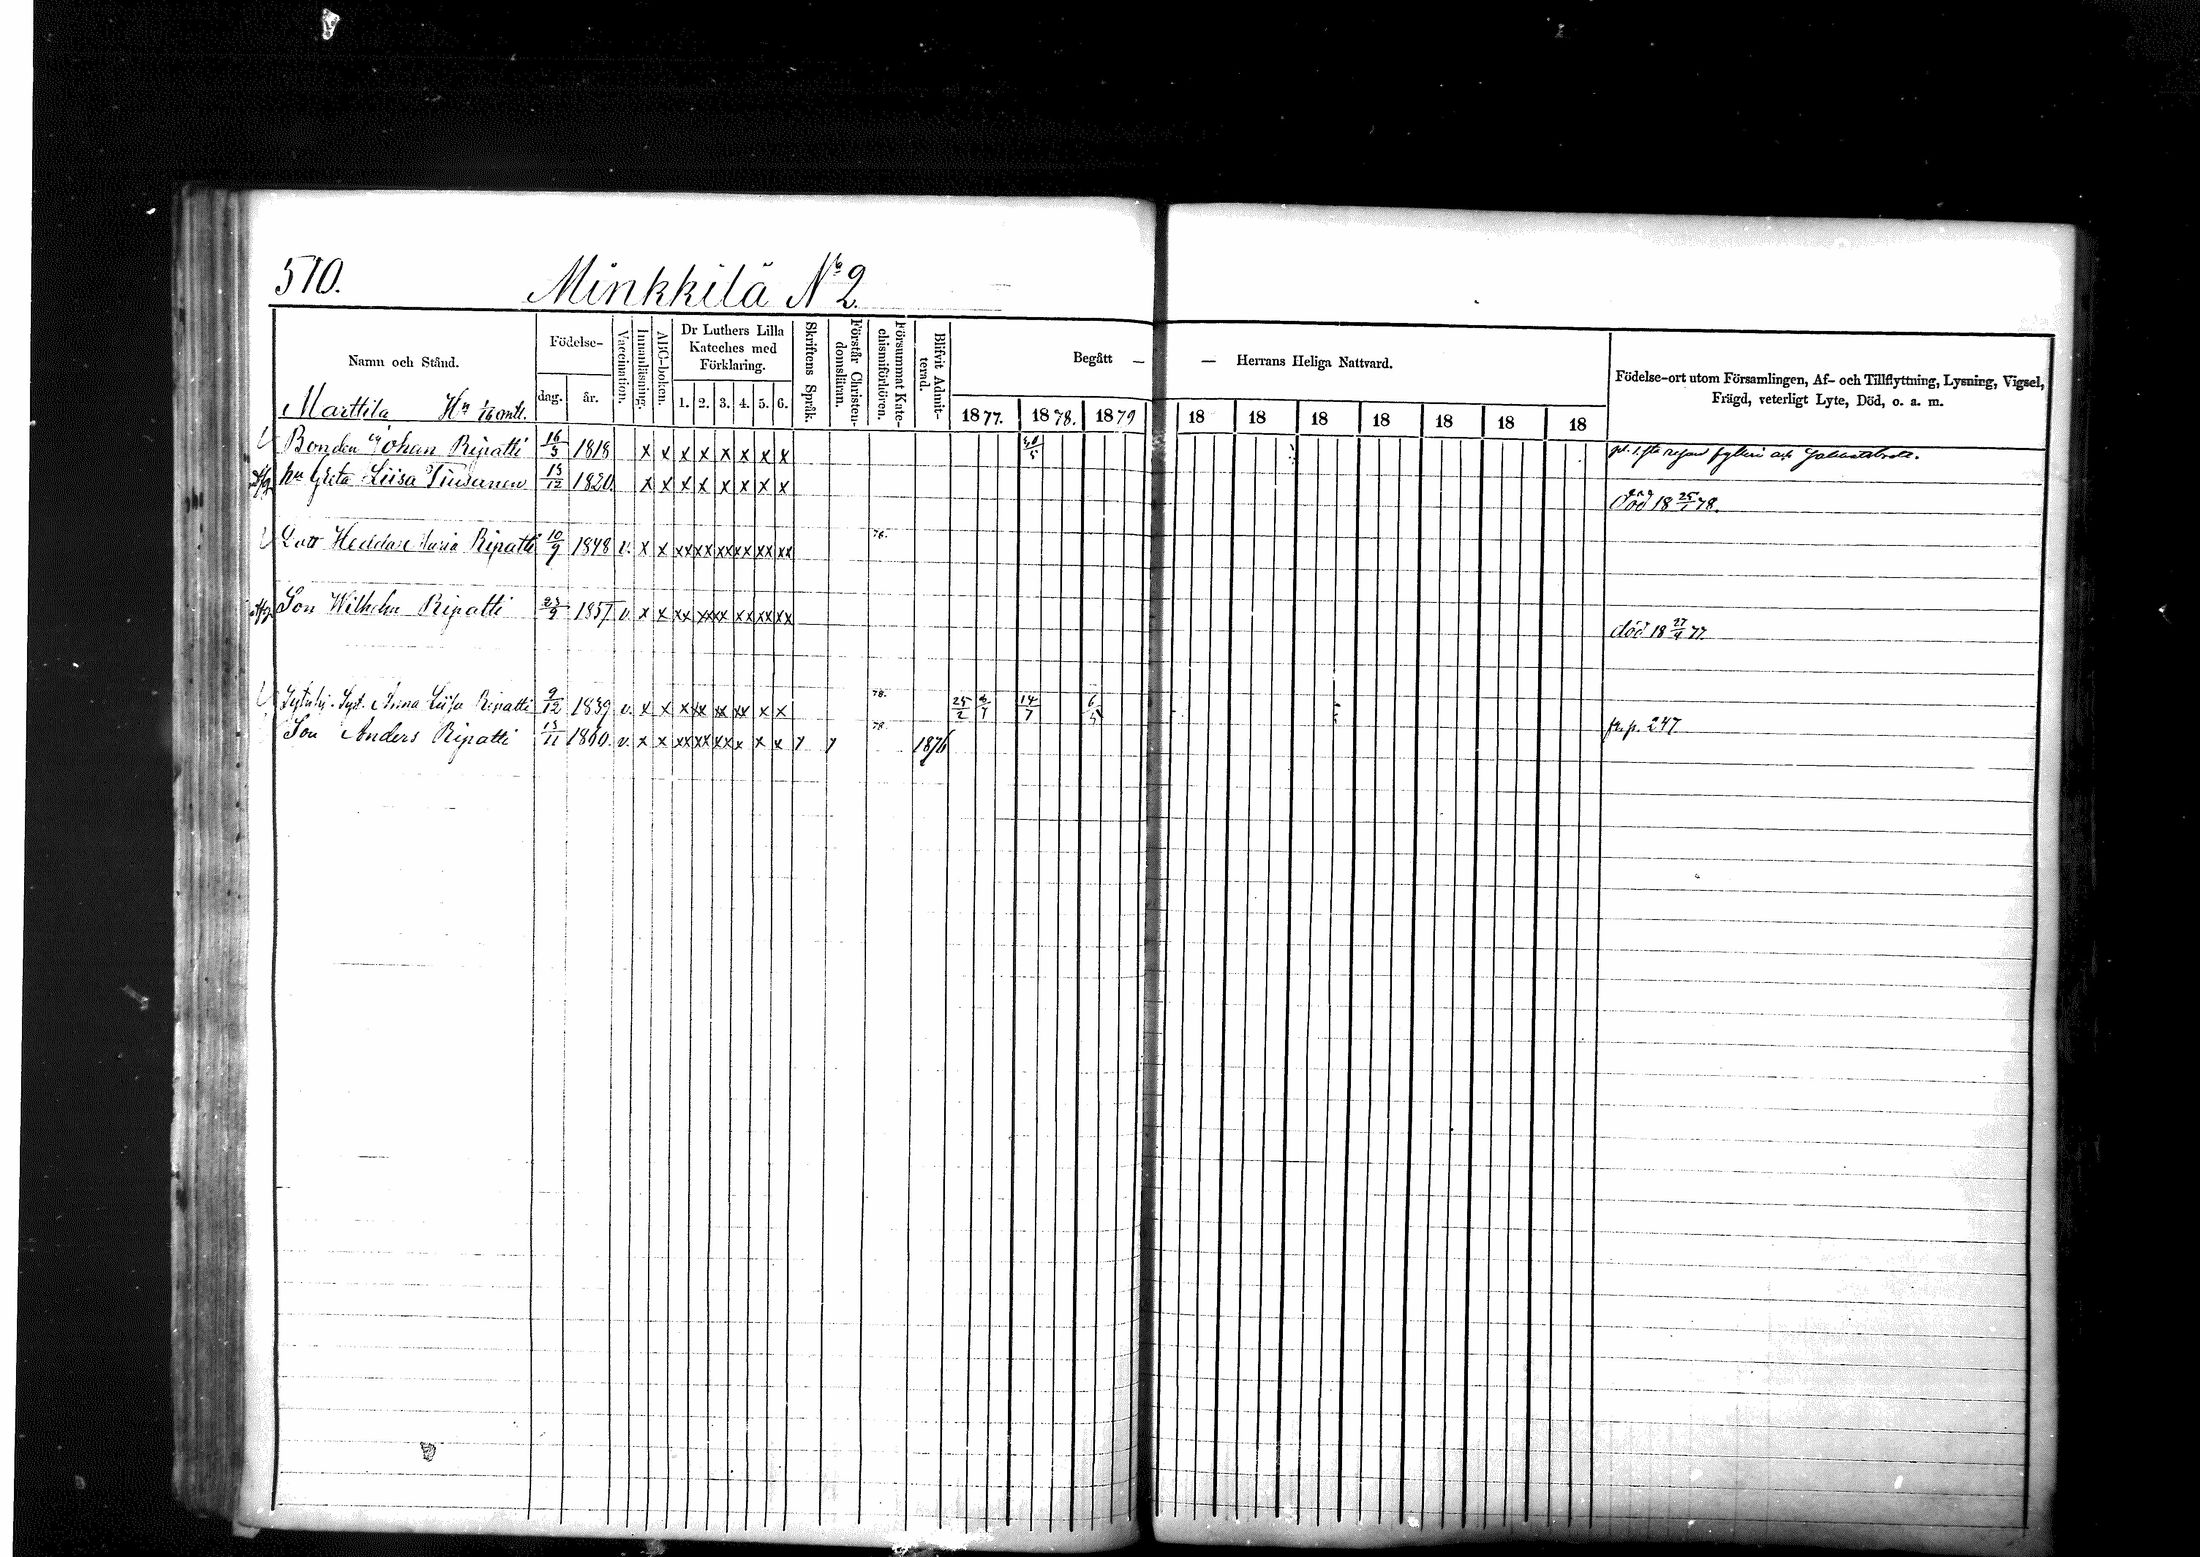 510.
Minkkilä No 2.
Namn och Stånd.
Födelse-
dag.
år.
Vaccination.
Innanläsning.
ABC-boken.
Dr Luthers Lilla
Kateches med
Förklaring.
1. 2. 3. 4. 5. 6.
Skriftens Språk.
Förstår Christen-
domsläran.
Försummat Kate-
chismiförhören.
Blifvit Admit-
terad.
Begått — — Herrans Heliga Nattvard.
1877. 1878. 1879 18 18 18 18 18 18 18
Födelse-ort utom Församlingen, Af- och Tillflyttning, Lysning, Vigsel,
Frägd, veterligt Lyte, Död, o. a. m.
Marttila Hn 1/16 mtl.
Bonden Johan Ripatti 16/3 1818 x x x x x x x x
Hu Greta Liisa Tiusanen 13/12 1820 x x x x x x x x död 18 25/1 78.
Dott Hedda Maria Ripatti 10/9 1848 v. x x xx xx xx xx xx xx 76.
Son Wilhelm Ripatti 23/9 1857 v. x x xx xxx xx xx xx xx död 18 27/4 77.
Anna Liisa Ripatti 9/12 1839 v. x x x xx xx xx x x 78. 25/2 14/7
Son Anders Ripatti 13/11 1860. v. x x xx xx xx x x x y y 78. 1876 p. 247